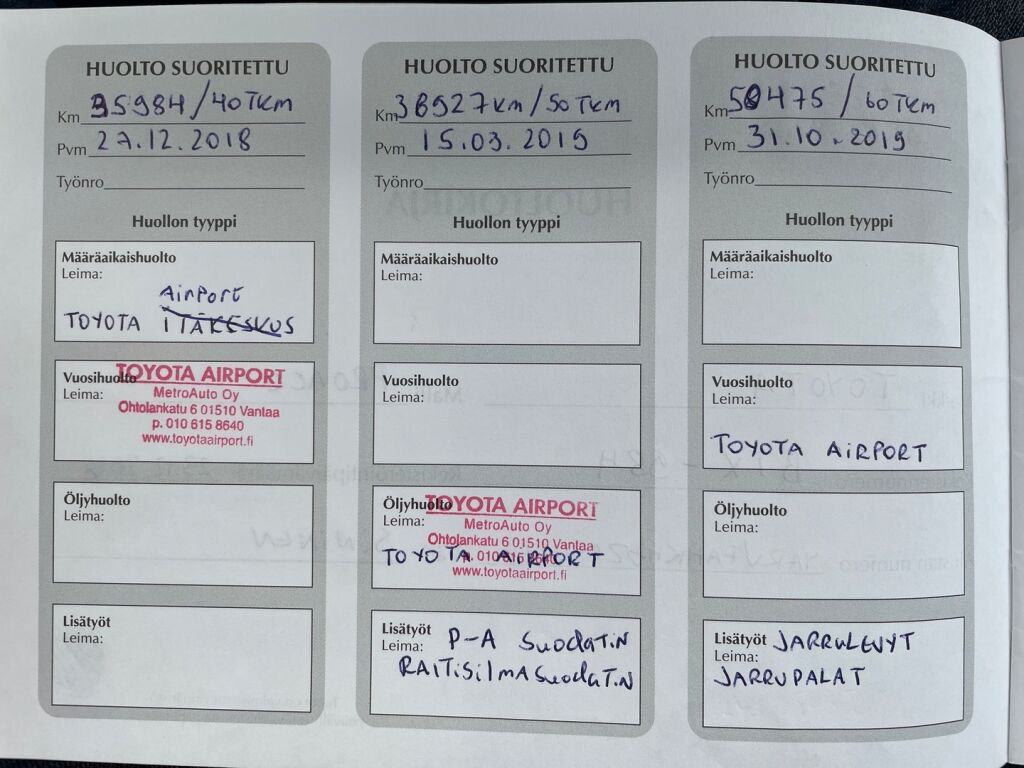 HUOLTO SUORITETTU
Km 35984/40TKM
Pvm 27.12.2018
Työnro
Huollon tyyppi
Määräaikaishuolto
Leima:
AiRPORT
TOYOTA ITÄKESKUS
Vuosihuolto
Leima:
TOYOTA AIRPORT
MetroAuto Oy
Ohtolankatu 6 01510 Vantaa
p. 010 615 8640
www.toyotaairport.fi
Öljyhuolto
Leima:
Lisätyöt
Leima:
HUOLTO SUORITETTU
Km 38927km/50TKM
Pvm 15.03.2019
Työnro
Huollon tyyppi
Määräaikaishuolto
Leima:
Vuosihuolto
Leima:
Öljyhuolto
Leima:
TOYOTA AIRPORT
MetroAuto Oy
Ohtolankatu 6 01510 Vantaa
p. 010 615 8640
TOYOTA AiRPORT
www.toyotaairport.fi
Lisätyöt P-A SuodaTiN
Leima: RAITiSilMASuodaTiN
HUOLTO SUORITETTU
Km 50475/60TKM
Pvm 31.10.2019
Työnro
Huollon tyyppi
Määräaikaishuolto
Leima:
Vuosihuolto
Leima:
TOYOTA AiRPORT
Öljyhuolto
Leima:
Lisätyöt JARRULEVYT
Leima:
JARRUPALAT